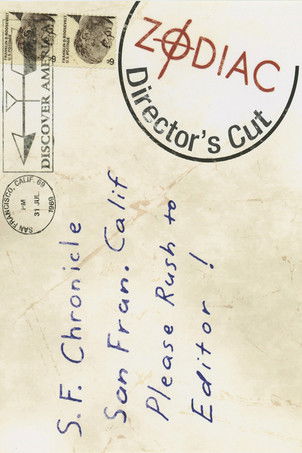 ZODIAC
Director's Cut
DISCOVER AMERICA
SAN FRANCISCO, CALIF. 69
PM
31 JUL
1969
S.F. Chronicle
San Fran. Calif
Please Rush to
Editor!